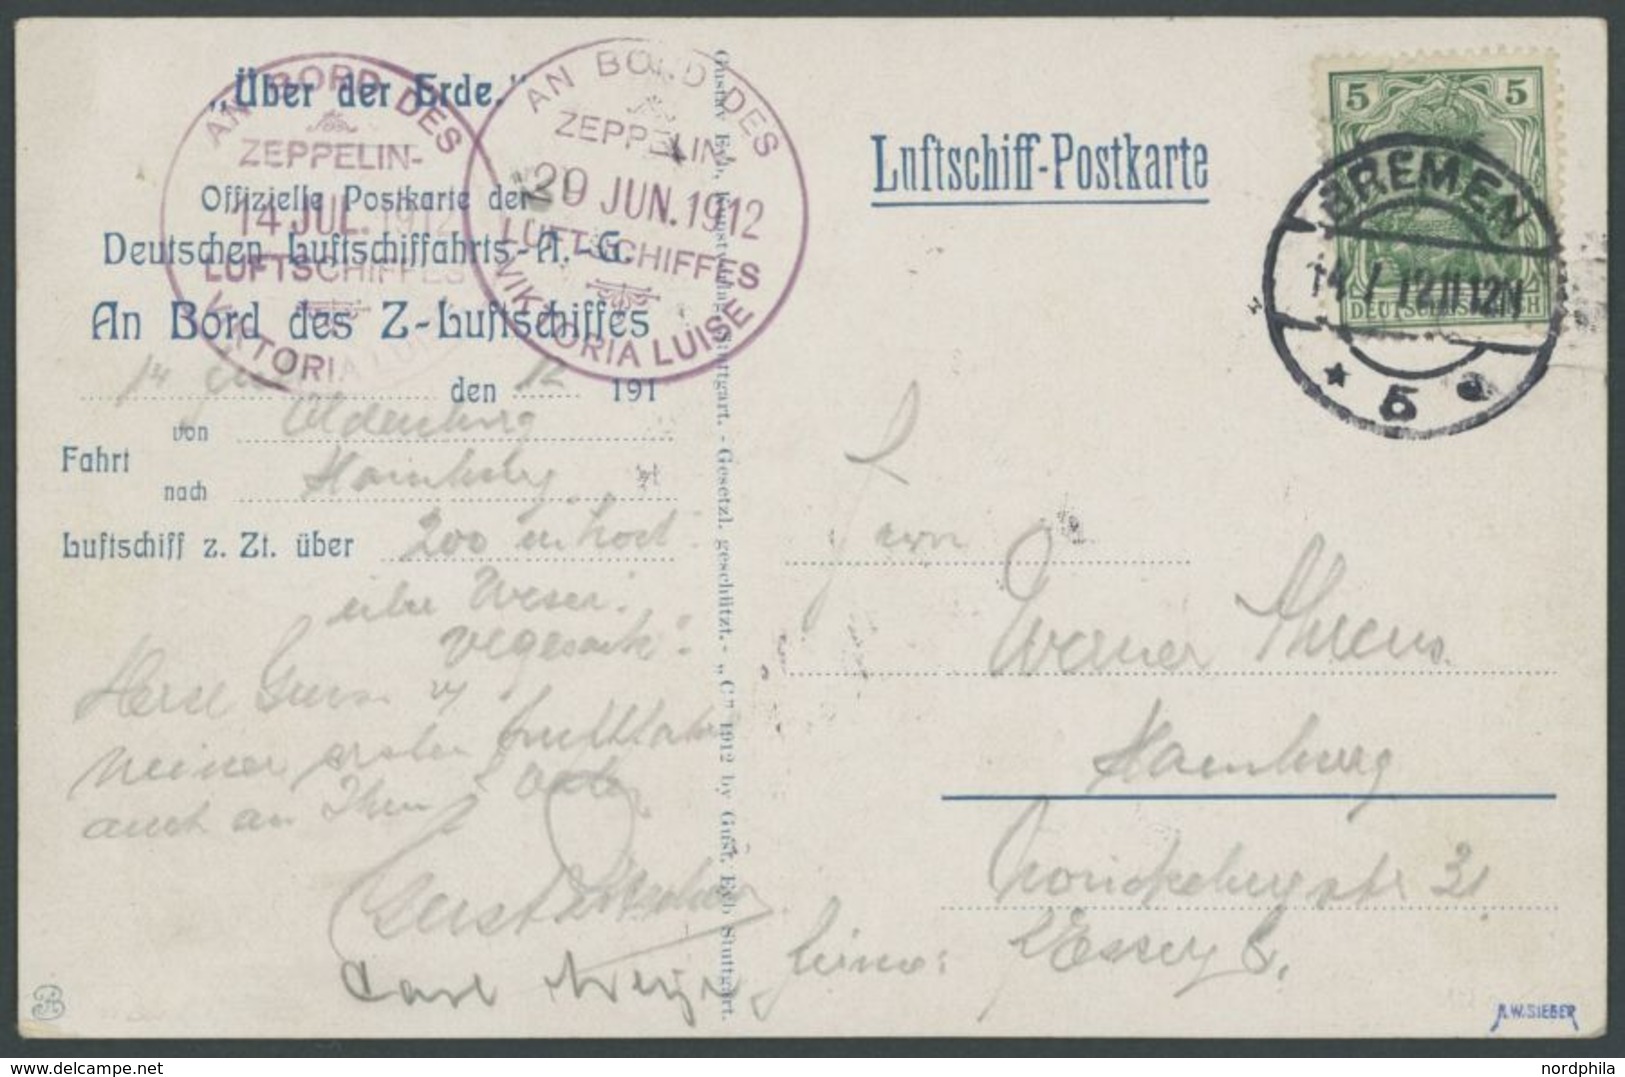 „Über der Erde."
Offizielle Postkarte der
Deutschen Luftschiffahrts-A.-G.
An Bord des Z-Luftschiffes
14 den 12 191
von Oldenburg
Fahrt
nach Hamburg
Luftschiff z. Zt. über 200 m hoch
über Weser.
Vegesack.
meiner ersten Luftfahrt
auch an Ihren
Carl
AN BORD DES
ZEPPELIN-
14 JUL. 1912
LUFTSCHIFFES
VIKTORIA LUISE
AN BORD DES
ZEPPELIN
20 JUN. 1912
LUFTSCHIFFES
VIKTORIA LUISE
Gustav Eyb, Kunstverlag, Stuttgart. - Gesetzl. geschützt. - „C" 1912 by Gust. Eyb Stuttgart.
Luftschiff-Postkarte
5 5
DEUTSCHES REICH
BREMEN
14 7 12 11 12N
* 5
Herrn
Werner Ahrens
Hamburg
31
A.W.SIEGER
www.delcampe.net
nordphila